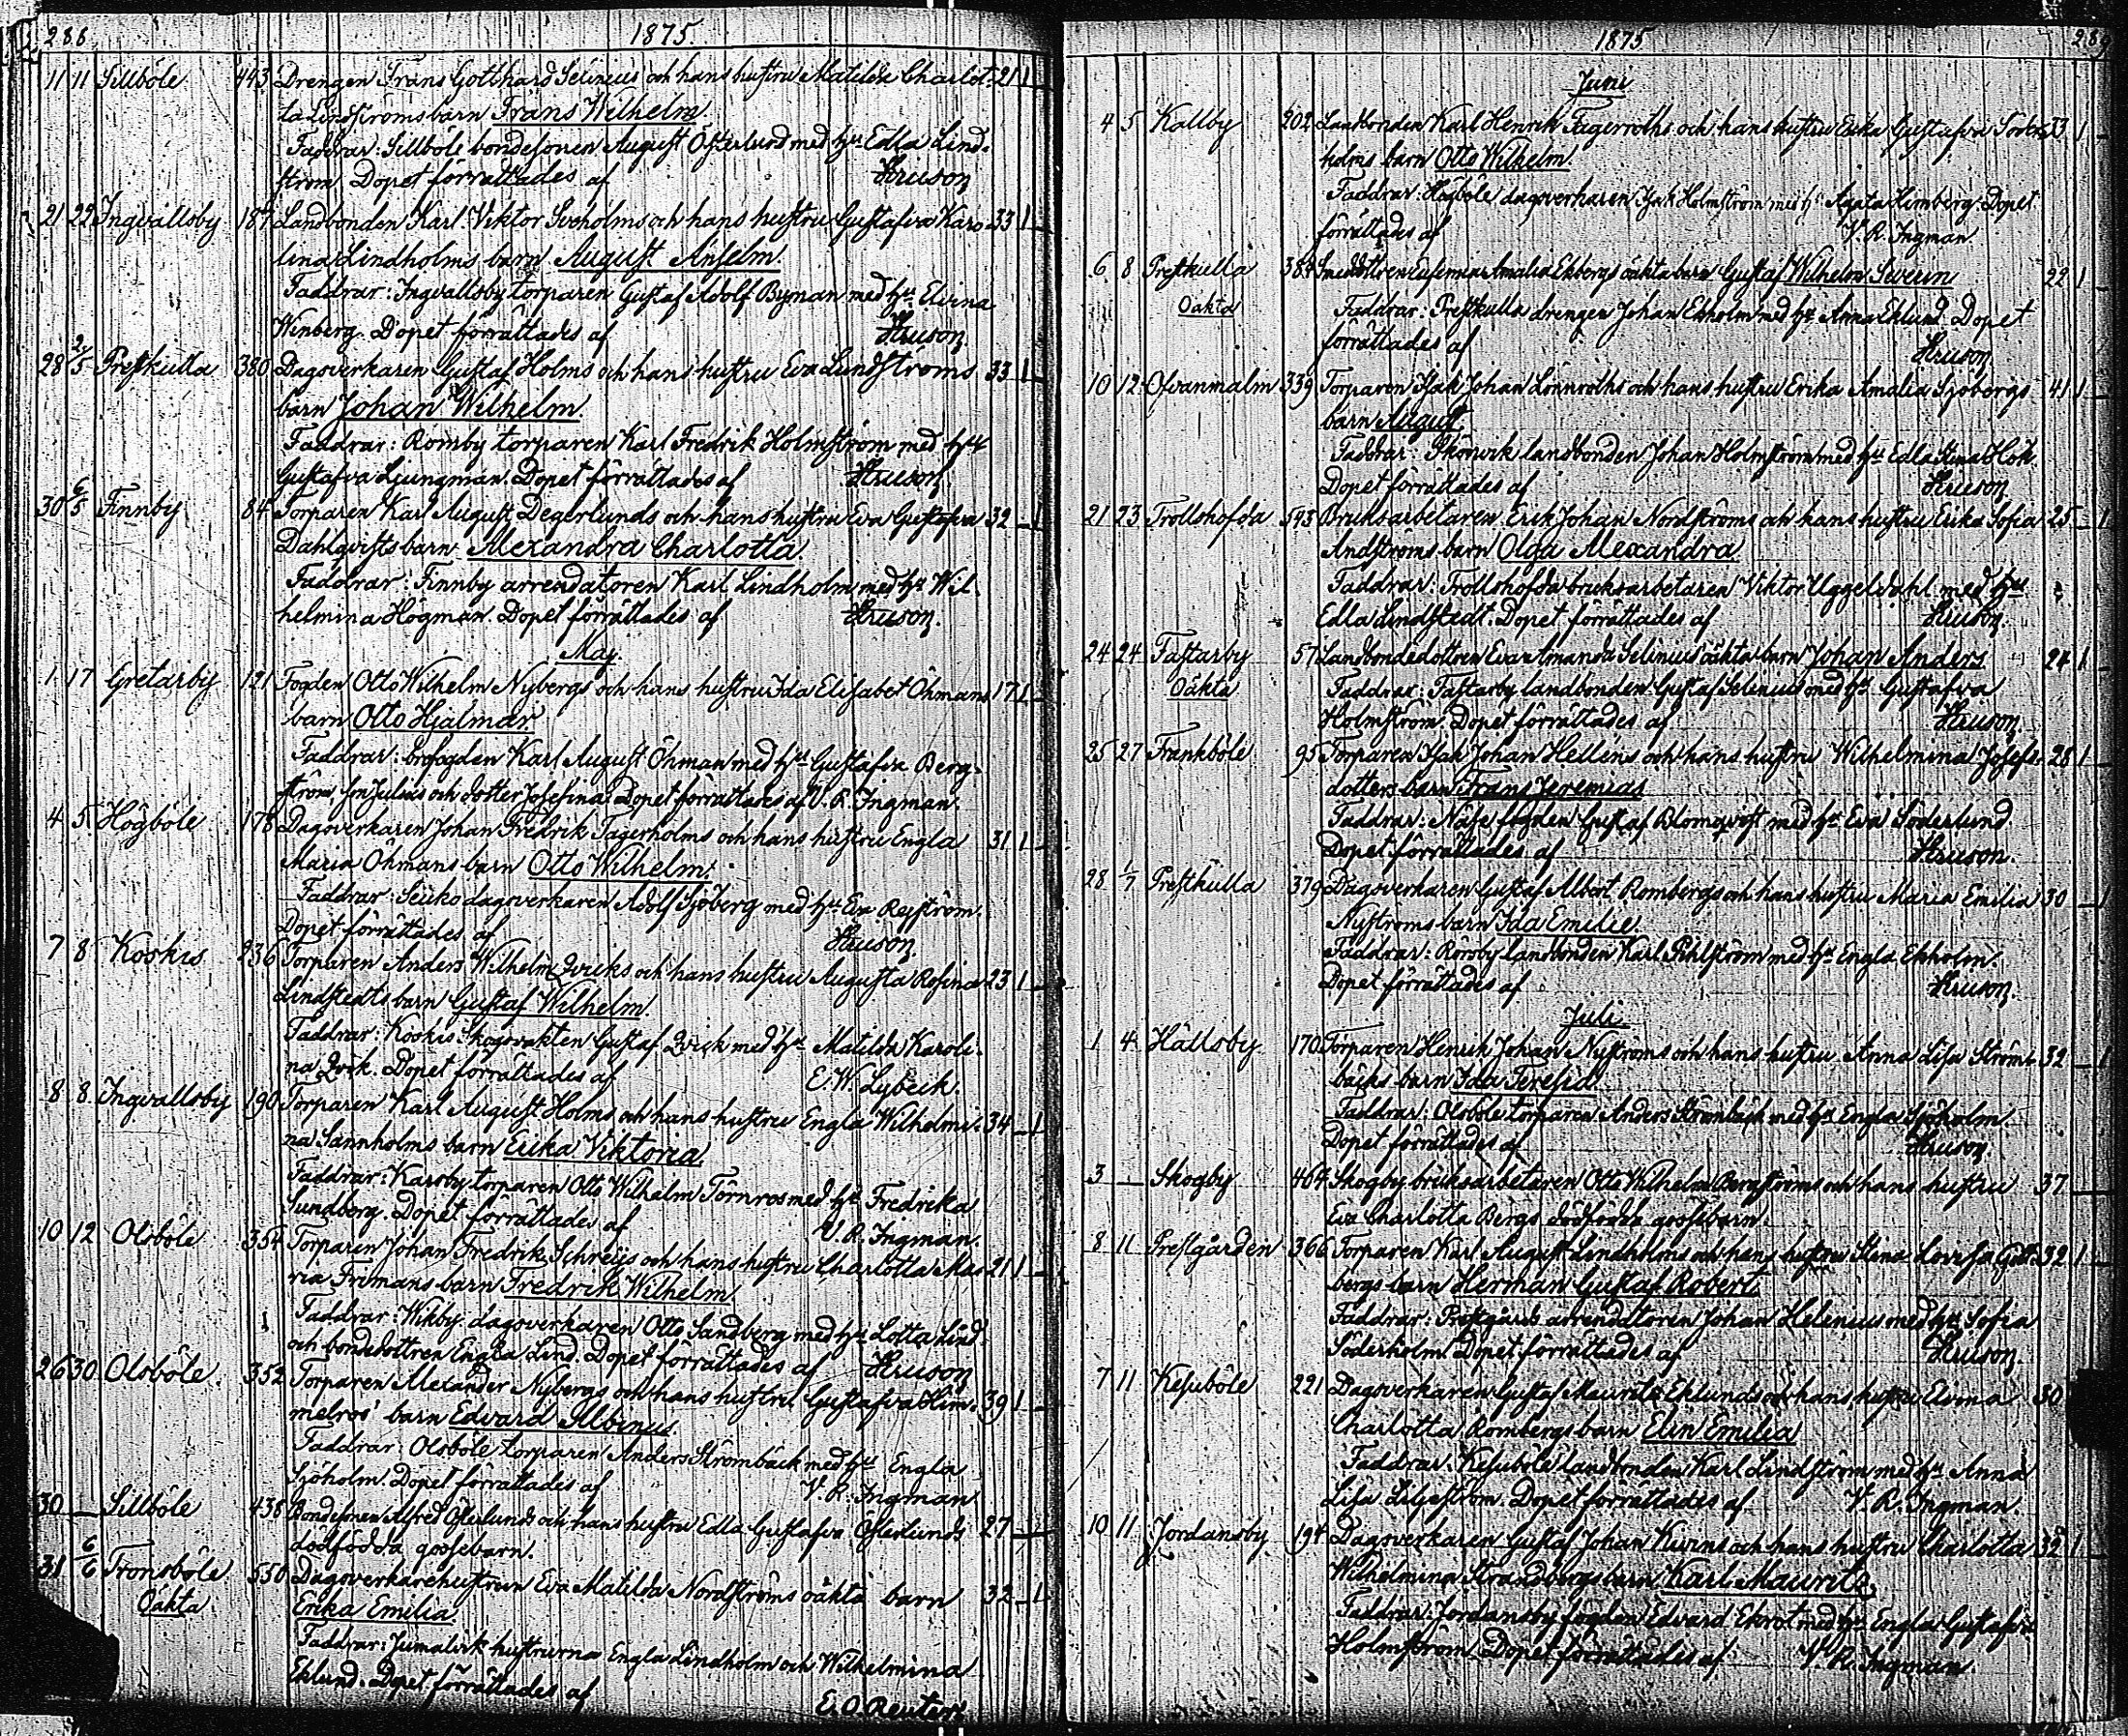 288 1875
11 11 Sillböle 493 Drengen Frans Gotthard Selinius och hans hustru Matilda Charlot- 21 1
ta Lindströms barn Frans Wilhelm
Faddrar: Sillböle bondesonen August Österlund med hu Edla Lind-
ström. Dopet förrättades af Kruson
21 22 Ingvallsby 187 Landbonden Karl Viktor Seeholms och hans hustru Gustafva Karo- 33 1
lina Lindholms barn August Anselm
Faddrar: Ingvallsby torparen Gustaf Adolf Byman med hu Elvina
Winberg. Dopet förrättades af Kruson
28 2/5 Prestkulla 380 Dagsverkaren Gustaf Holms och hans hustru Eva Lundströms 33 1
barn Johan Wilhelm
Faddrar: Romby torparen Karl Fredrik Holmström med hu
Gustafva Ljungman. Dopet förrättades af Kruson
30 6/5 Finnby 84 Torparen Karl August Degerlunds och hans hustru Eva Gustafva 32 1
Dahlqvists barn Alexandra Charlotta
Faddrar: Finnby arrendatoren Karl Lindholm med hu Wil-
helmina Högman. Dopet förrättades af Kruson.
May
1 17 Gretarby 121 Fogden Otto Wilhelm Nybergs och hans hustru Ida Elisabet Öhmans 17 1
barn Otto Hjalmar
Faddrar: brofogden Karl August Öhman med hu Gustafva Berg-
ström, son Julius och dotter Josefina. Dopet förrättades af V. R. Ingman.
4 5 Högböle 178 Dagsverkaren Johan Fredrik Fagerholms och hans hustru Engla 31 1
Maria Öhmans barn Otto Wilhelm.
Faddrar: dagsverkaren Adolf Sjöberg med hu Eva Reiström.
Dopet förrättades af Kruson
7 8 Koskis 236 Torparen Anders Wilhelm Qvicks och hans hustru Augusta Rosina 23 1
Lindstedts barn Gustaf Wilhelm.
Faddrar: Koskis Skogsvakten Gustaf Qvick med hu Matilda Karoli-
na Qvik. Dopet förrättades af E. W. Lybeck.
8 8 Ingvallsby 190 Torparen Karl August Holms och hans hustru Engla Wilhelmi- 34 1
na Sannholms barn Erika Viktoria
Faddrar: Karsby torparen Otto Wilhelm Törnros med hu Fredrika
Sundborg. Dopet förrättades af V. R. Ingman.
10 12 Olsböle 354 Torparen Johan Fredrik Schreijs och hans hustru Charlotta Ma- 21 1
ria Frimans barn Fredrik Wilhelm
Faddrar: Wikby dagsverkaren Otto Sandberg med hu Lotta Lind
och bondedottren Engla Lind. Dopet förrättades af Kruson
26 30 Olsböle. 352 Torparen Alexander Nybergs och hans hustru Gustafva Him- 39 1
melros' barn Edvard Albinus.
Faddrar: Olsböle torparen Anders Strömbäck med hu Engla
Sjöholm. Dopet förrättades af V. R. Ingman
30 Sillböle 438 Bondesonen Alfred Österlunds och hans hustru Edla Gustafva Österlunds 27
dödfödda gossebarn.
31 6/6 Tronsböle 550 Dagsverkarehustrun Eva Matilda Nordströms oäkta barn 32 1
Oäkta Erika Emilia.
Faddrar: Jumalvik hustrurna Engla Lindholm och Wilhelmina
Eklund. Dopet förrättades af E. O. Reuter
1875 289
Juni
4 5 Källby 202 Landbonden Karl Henrik Fagerroths och hans hustru Erika Gustafva Söder- 33 1
holms barn Otto Wilhelm.
Faddrar: Högböle dagsverkaren Isak Holmström med hu Agata Himberg. Dopet
förrättades af V. R. Ingman
6 8 Prestkulla 384 Amalia Ekbergs oäkta barn Gustaf Wilhelm Severin 22 1
Oäkta Faddrar: Prestkulla drengen Johan Ekholm med hu Anna Eklund. Dopet
förrättades af Kruson
10 12 Ofvanmalm 339 Torparen Isak Johan Lönnroths och hans hustru Erika Amalia Sjöbergs 41 1
barn August.
Faddrar: Skönvik landbonden Johan Holmström med hu Edla Stina Hök.
Dopet förrättades af Kruson
21 23 Trollshofda 593 Bruksarbetaren Erik Johan Nordströms och hans hustru Erika Sofia 25 1
Andströms barn Olga Alexandra
Faddrar: Trollshofda bruksarbetaren Viktor Uggeldahl med hu
Edla Lindstedt. Dopet förrättades af Kruson.
24 24 Fastarby 57 Landbondedottren Eva Amanda Selinius oäkta barn Johan Anders 24 1
Oäkta Faddrar: Fastarby landbonden Gustaf Selenius med hu Gustafva
Holmström. Dopet förrättades af Kruson.
25 27 Frankböle 95 Torparen Isak Johan Helléns och hans hustru Wilhelmina Josefs- 28 1
dotters barn Frans Jeremias
Faddrar: Näse fogden Gustaf Blomqvist med hu Eva Söderlund
Dopet förrättades af Kruson.
28 1/7 Prestkulla 379 Dagsverkaren Gustaf Albert Rombergs och hans hustru Maria Emilia 30 1
Nyströms barn Ida Emilie.
Faddrar: Rörsby landbonden Karl Pihlström med hu Engla Ekholm.
Dopet förrättades af Kruson.
Juli.
1 4 Hällsby 170 Torparen Henrik Johan Nyströms och hans hustru Anna Lisa Ström- 32 1
bäcks barn Ida Teresia
Faddrar: Olsböle torparen Anders Strömbäck med hu Engla Sjöholm.
Dopet förrättades af Kruson.
3 Skogby 464 Skogby bruksarbetaren Otto Wilhelm Bergströms och hans hustru 37
Eva Charlotta Bergs dödfödda gossebarn.
8 11 Prestgården 366 Torparen Karl August Lindholms och hans hustru Stina Lovisa 32 1
bergs barn Herman Gustaf Robert.
Faddrar: Prestgårds arrendatoren Johan Helenius med hu Sofia
Söderholm. Dopet förrättades af Kruson.
7 11 Kesuböle 221 Dagsverkaren Gustaf Mauritz Eklunds och hans hustru Elvina 30
Charlotta Rombergs barn Elin Emilia
Faddrar: Kesuböle landbonden Karl Lindström med hu Anna
Lisa Liljeström. Dopet förrättades af V. R. Ingman.
10 11 Jordansby 194 Dagsverkaren Gustaf Johan Kivins och hans hustru Charlotta 32 1
Wilhelmina Strandbergs barn Karl Mauritz.
Faddrar: Jordansby fogden Edvard Ekrot med hu Engla Gustafva
Holmström. Dopet förrättades af V. R. Ingman.